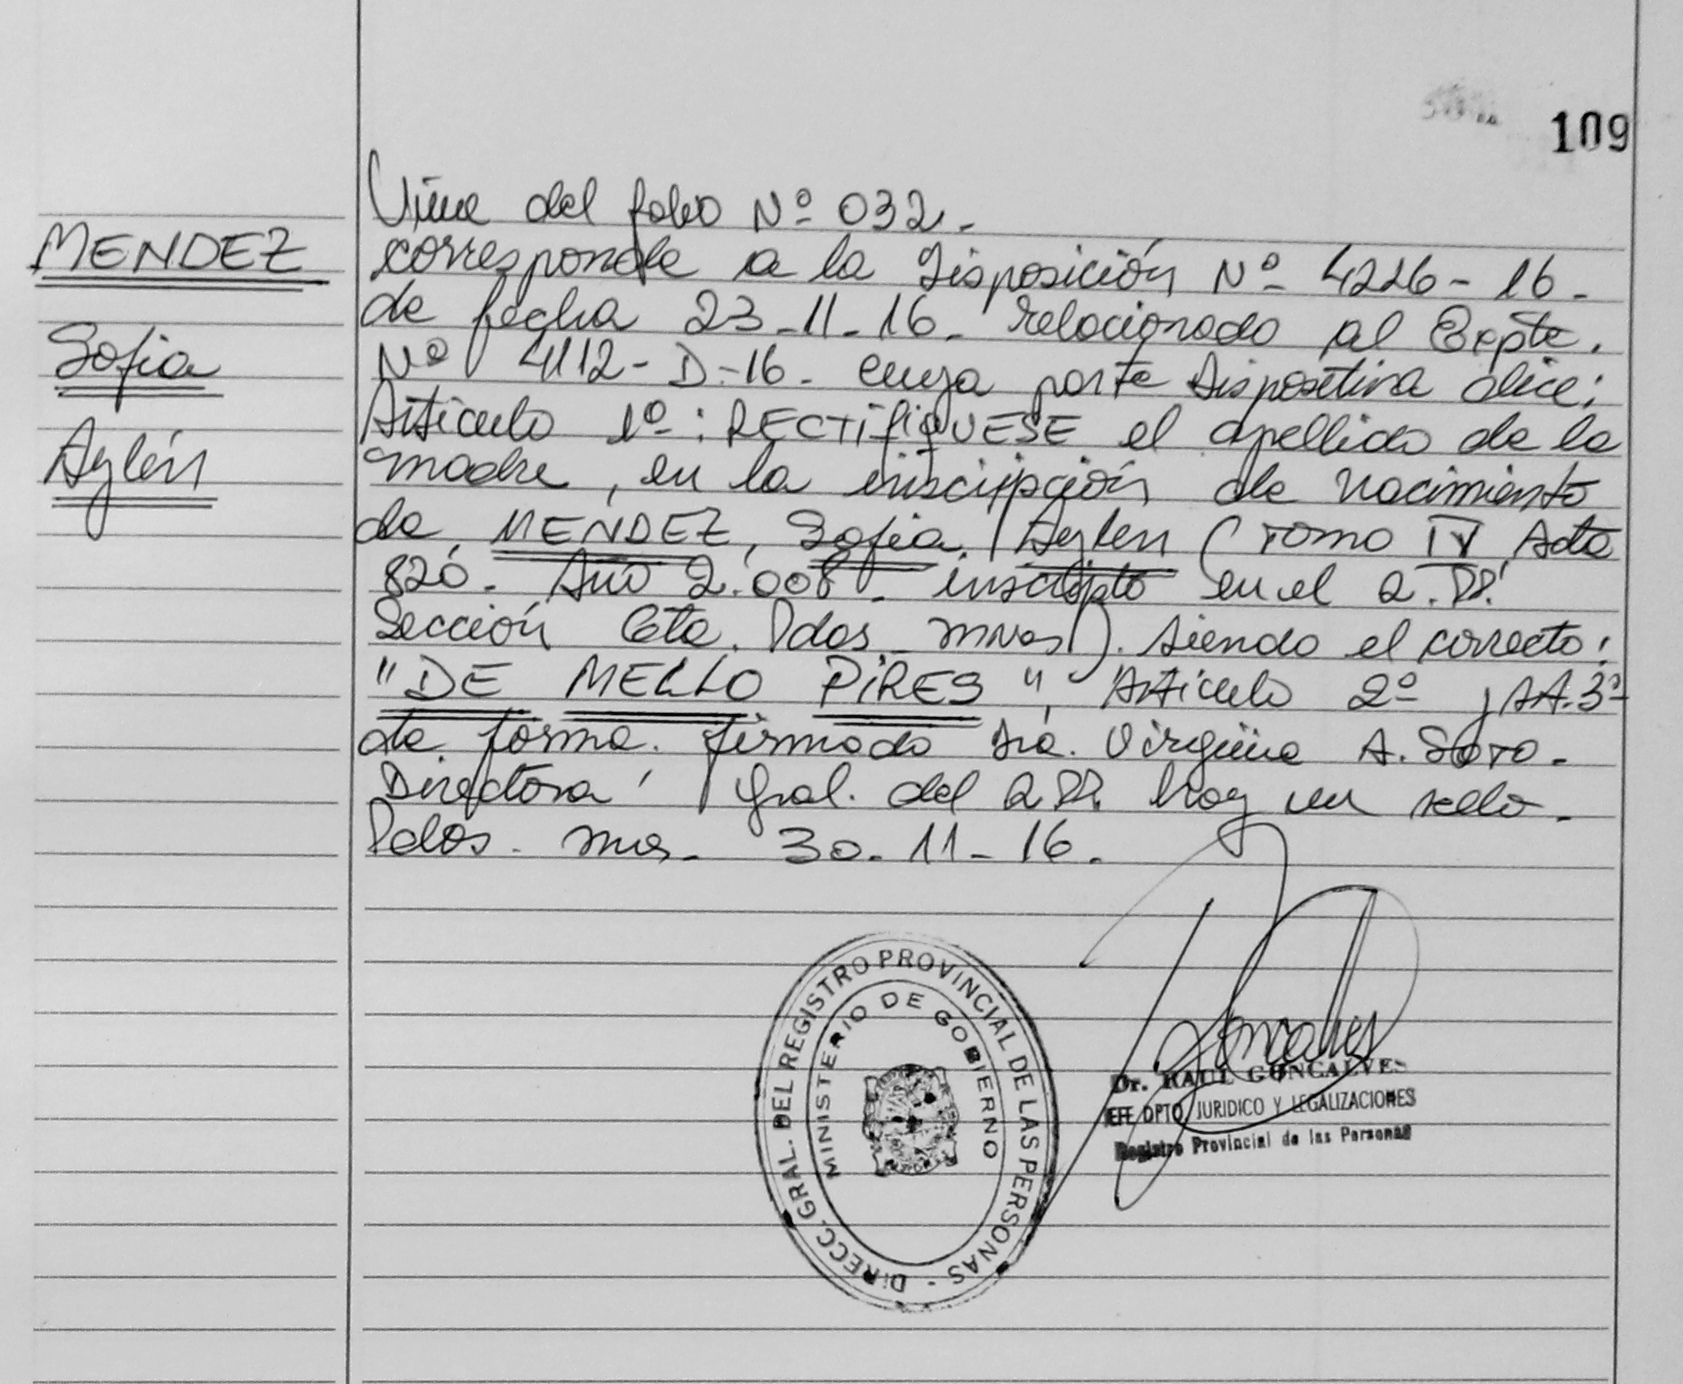 109
MENDEZ
Sofia
Aylén
Viene del folio Nº 032.-
corresponde a la Disposición Nº 4226-16-
de fecha 23-11-16- relacionado al Expte.
Nº 4112-D-16- cuya parte dispositiva dice:
Artículo 1º: RECTIFIQUESE el apellido de la
madre, en la inscripción de nacimiento
de, MENDEZ, Sofia, Aylen (Tomo IV Acta
820. Año 2.008- inscripto en el
Sección 6ta. Pdas mnes). siendo el correcto:
"DE MELLO PIRES", Artículo 2º y AA.3º
de forma. firmado Dra. Virginia A. Soto.
Directora Gral. del hay un sello.
Pdas. mnes. 30-11-16.
DIRECC. GRAL. DEL REGISTRO PROVINCIAL DE LAS PERSONAS -
MINISTERIO DE GOBIERNO
Dr. RAUL GONCALVES
JEFE DPTO JURIDICO Y LEGALIZACIONES
Registro Provincial de las Personas